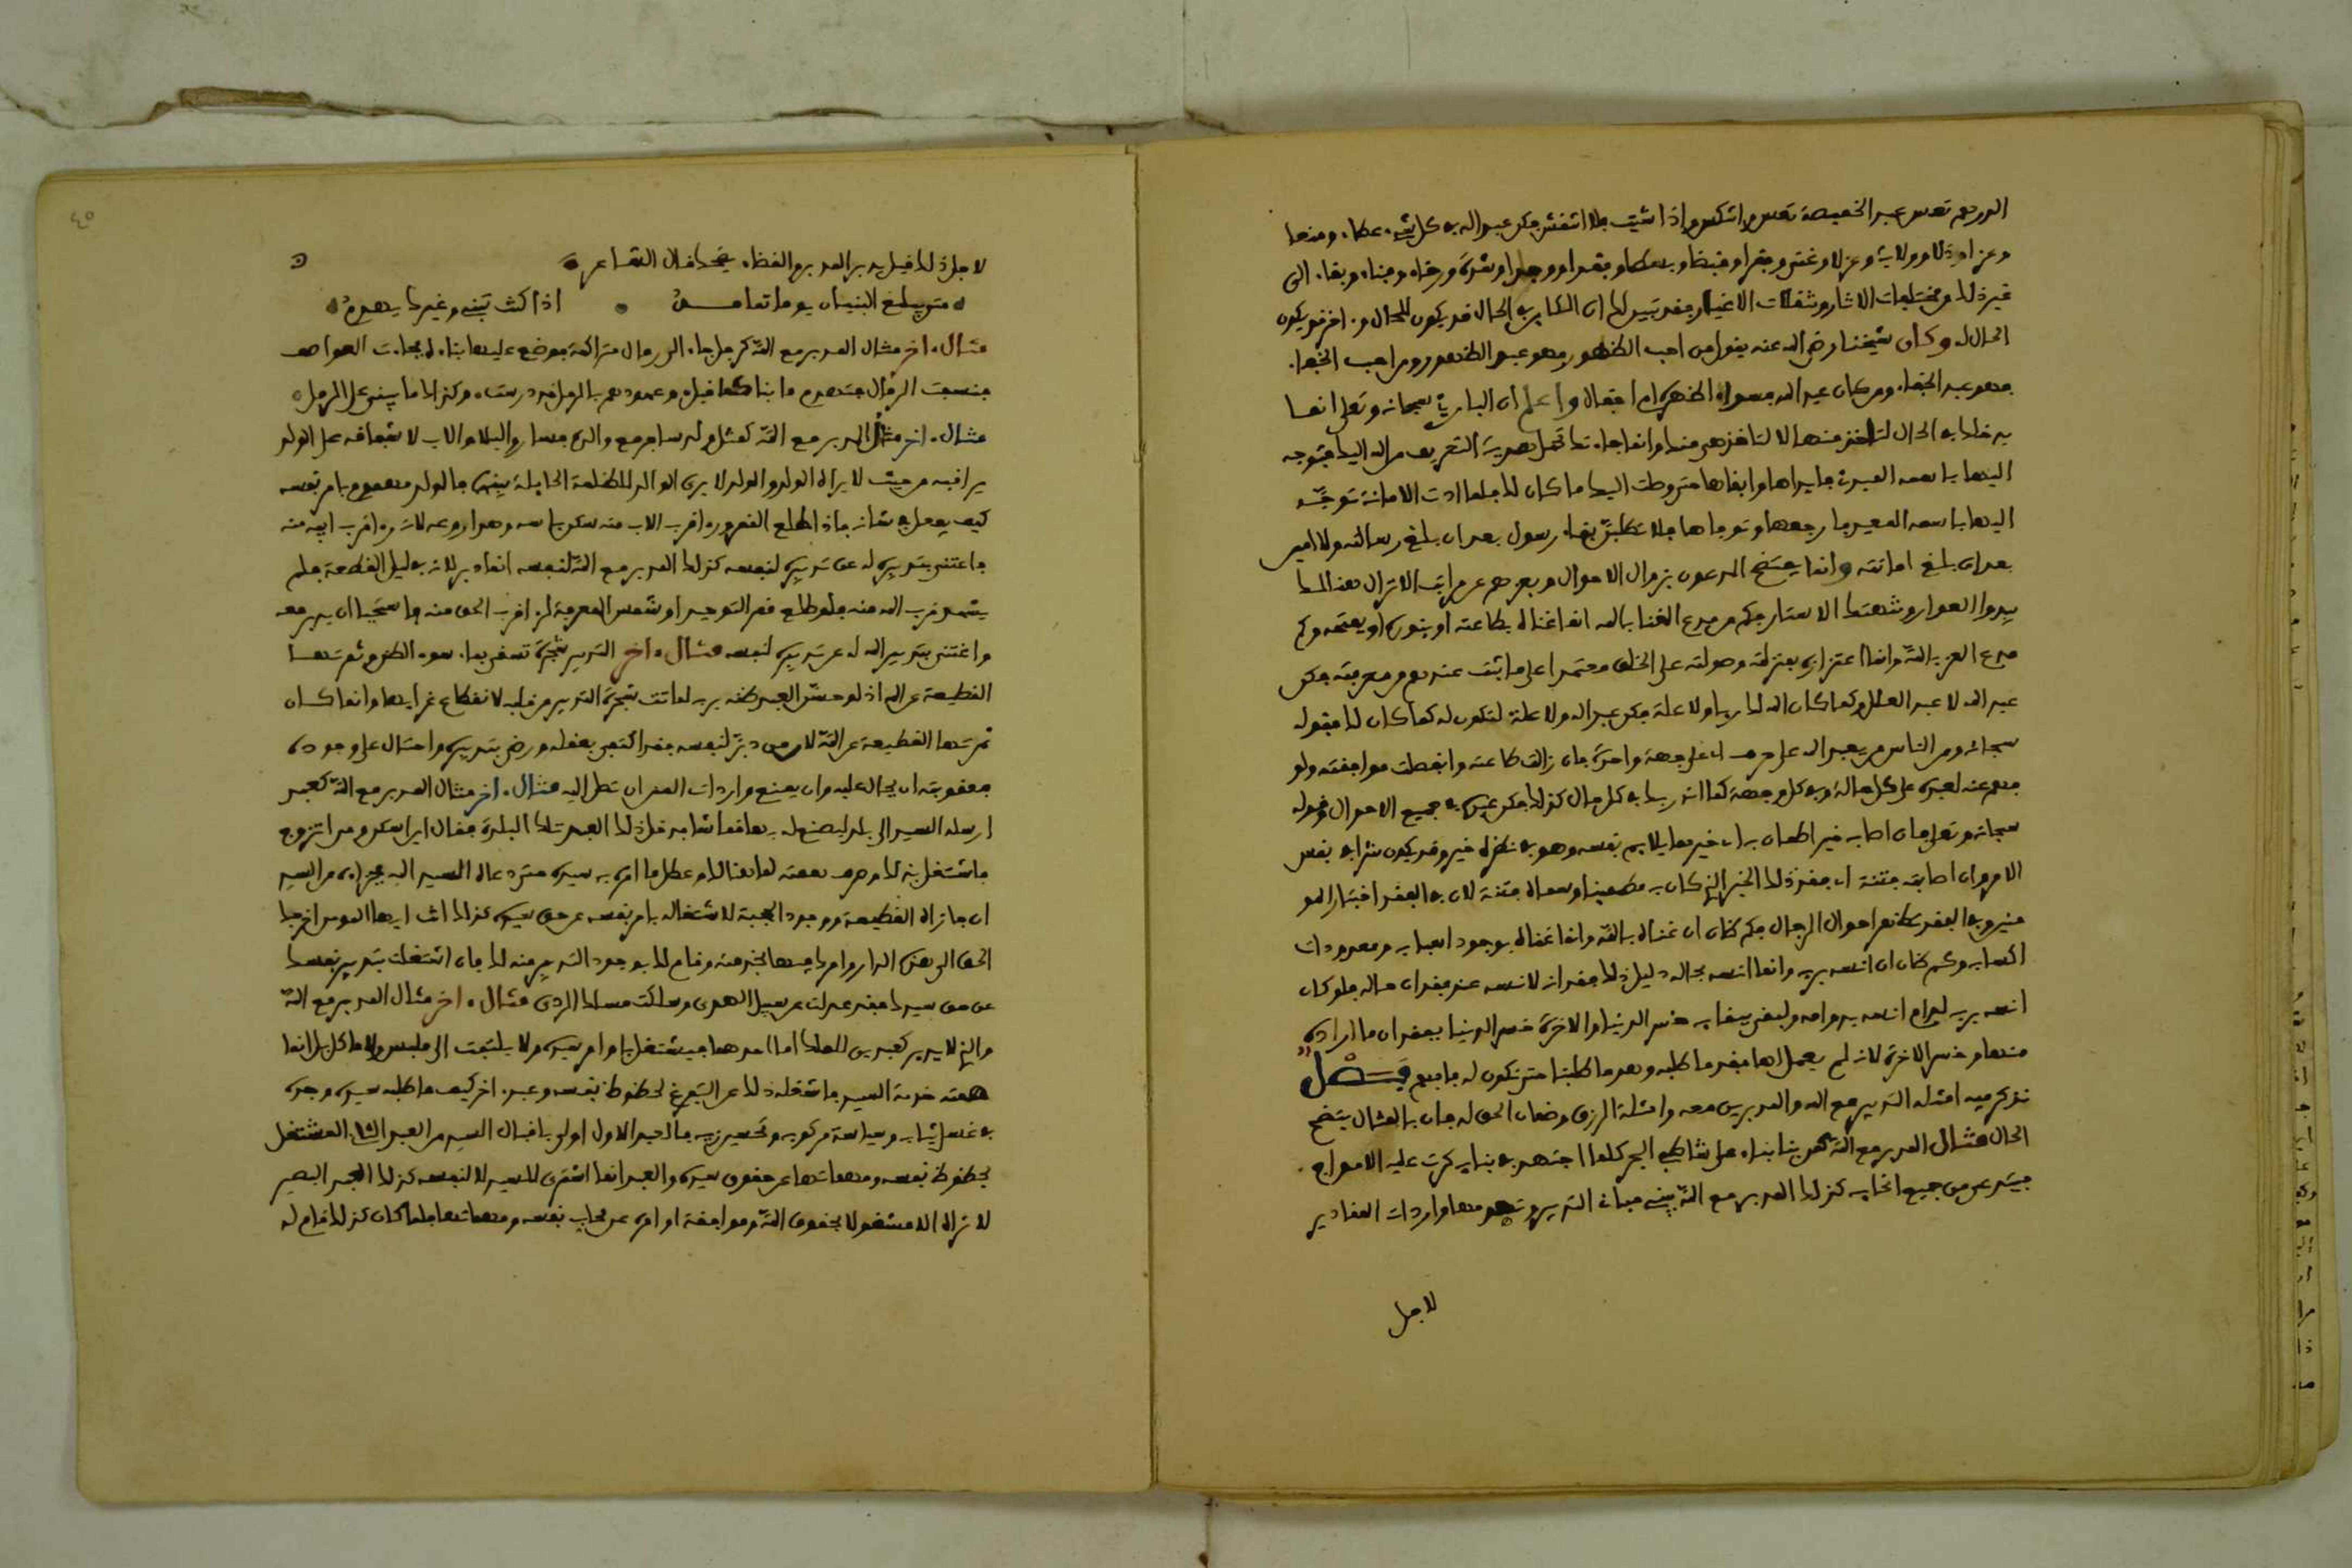 الدرهم تعس عبد الخميصة تعس وانتكس وإذا شيك فلا انتقش فكن عبد الله في كل شيء عطاء ومنعا
وعزا وذلا وولاية وعزلا وغنى وفقرا وقبضا وبسطا وفقدا ووجدا وشدة ورخاء وفناء وبقاء إلى
غير ذلك من مختلفات الاثار وتنقلات الاغيار فقد تبين لك ان التارك في الحال قد يكون للحال وآخر قد يكون
الحال له وكان شيخنا رضي الله عنه يقول من احب الظهور فهو عبد الظهور ومن احب الخفاء
فهو عبد الخفاء ومن كان عبد الله فسواء اظهره ام اخفاه واعلم ان الباري سبحانه وتعلى انما
يدخلك في الحال لتاخذ منها لا لتاخذ هي منك وانما جاءتك تحمل هدية التعريف من الله اليك فتوجه
اليها باسمه المبدئ فابداها وابقاها حتى وصلت اليك ما كان لك فلما ادت الامانة توجه
اليها باسمه المعيد فارجعها وتوفاها فلا تطلبن بقاء رسول بعد ان بلغ رسالته ولا امين
بعد ان بلغ امانته وانما يفتضح المدعون بزوال الاحوال وبعزلهم عن مراتب الانزال هنالك
يبدوا العوار وتنهتك الاستار فكم من مدع الغنا بالله انما غناه بطاعته او بنوره او بفتحه وكم
مدع العز بالله وانما اعتزازه بمنزلته وصولته على الخلق معتمدا على ما ثبت عندهم من معرفته فكن
عبد الله لا عبد العلل وكما كان الله لك ربا ولا علة فكن عبد الله ولا علة لتكون له كما كان لك فقوله
سبحانه ومن الناس من يعبد الله على حرف اي على وجهة واحدة فان زالت طاعته وانفصلت موافقته ولو
فهم عنه لعبده على كل حالة وفي كل وجهة كما انه ربك في كل حال كذلك فكن عبده في جميع الاحوال وقوله
سبحانه وتعلى فان اصابه خير اطمان به اي خير مما يلايم نفسه وهو في نظره خير وقد يكون شرا في نفس
الامر وان اصابته فتنة اي فقد ذلك الخير الذي كان به مطمينا وسماه فتنة لان في الفقد اختبار المو
منين وفي الفقد تظهر احوال الرجال فكم ظان ان غناه بالله وانما غناه بوجود اسبابه ومعدودات
اكتسابه وكم ظان ان انسه بربه وانما انسه بحاله دليل ذلك فقدانه لانسه عند فقدان حاله فلو كان
انسه بربه لدام انسه بدوامه ولبقي ببقايه خسر الدنيا والاخرة خسر الدنيا بفقدان ما اراده
منها وخسر الاخرة لانه لم يعمل لها ففقد ما طلبه وهو ما طلبنا حتى نكون له فافهم فصل
نذكر فيه امثلة التدبير مع الله والمدبرين معه وامثلة الرزق وضمان الحق له فان بالمثال يتضح
الحال مثال المدبر مع الله كمن بنا بناء على شاطئ البحر كلما اجتهد في بنايه كرت عليه الامواج
فيتداعى من جميع انحايه كذلك المدبر مع الله يبني مباني التدبير وتهدمها واردات المقادير
لاجل
٤٥
لاجل ذلك قيل يدبر المدبر والقضاء يضحك قال الشاعر
متى يبلغ البنيان يوما تمامه اذا كنت تبنيه وغيرك يهدم
مثال اخر مثال المدبر مع الله كرجل جاء الى رمال متراكمة فوضع عليها بناء فجاءت العواصف
فنسفت الرمال فتهدم ما بناه كما قيل وعهودهم بالرمل قد درست وكذاك ما يبنى على الرمل
مثال اخر مثال المدبر مع الله كمثل ولد سافر مع والده فسارا بالليل والاب لاشفاقه على الولد
يراقبه من حيث لا يراه الولد والولد لا يرى الوالد للظلمة الحايلة بينهما فالولد مهموم بامر نفسه
كيف يفعل في شانه فاذا طلع القمر وراى قرب الاب منه سكن جاشه وهدا روعه لانه راى قرب ابيه منه
فاغتنى بتدبيره له عن تدبيره لنفسه كذلك المدبر مع الله لنفسه انما دبر لانه في ليل القطيعة فلم
يشهد قرب الله منه فلو طلع قمر التوحيد او شمس المعرفة لراى قرب الحق منه فاستحيا ان يدبر معه
واغتنى بتدبير الله له عن تدبيره لنفسه مثال اخر التدبير شجرة تسقى بماء سوء الظن وثمرتها
القطيعة عن الله اذ لو حسن العبد ظنه بربه لماتت شجرة التدبير من قلبه لانقطاع غذايها وانما كان
ثمرتها القطيعة عن الله لان من دبر لنفسه فقد اكتفى بعقله ورضي بتدبيره واحتال على وجوده
فعقوبته ان يحال عليه وان يمنع واردات المنن ان تصل اليه مثال اخر مثال المدبر مع الله كعبد
ارسله السيد الى بلد ليصنع له بها قماشا فدخل ذلك العبد تلك البلدة فقال اين اسكن ومن اتزوج
فاشتغل بذلك وصرف همته لما هنالك وعطل ما امره به سيده حتى دعاه السيد اليه فجزاءه من السيد
ان جازاه القطيعة ووجود الحجبة لاشتغاله بامر نفسه عن حق سيده كذلك انت ايها المومن اخرجك
الحق الى هذه الدار وامرك فيها بخدمته وقام لك بوجود التدبير منه لك فان اشتغلت بتدبير نفسك
عن حق سيدك فقد عدلت عن سبيل الهدى وسلكت مسالك الردى مثال اخر مثال المدبر مع الله
والذي لا يدبر كعبدين للملك اما احدهما فيشتغل باوامر سيده ولا يلتفت الى ملبس ولا ماكل بل انما
همته خدمة السيد فاشغله ذلك عن التفرغ لحظوظ نفسه وعبد اخر كيف ما طلبه سيده وجده
في غسل ثيابه وسياسة مركوبه وتحسين زيه فالعبد الاول اولى باقبال السيد من العبد الثاني المشتغل
بحظوظ نفسه ومهماتها عن حقوق سيده والعبد انما اشترى للسيد لا لنفسه كذلك العبد البصير
لا تراه الا مشغولا بحقوق الله وموافقة اوامره عن محاب نفسه ومهماتها فلما كان كذلك قام له